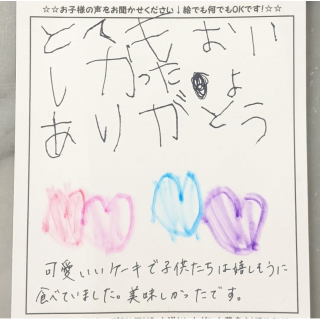 ☆☆お子様の声をお聞かせください↓絵でも何でもOKです!☆☆
とてもおいい
しかったしょ
ありがとう
可愛いいケーキで子供たちは嬉しそうに
食べていました。美味しかったです。